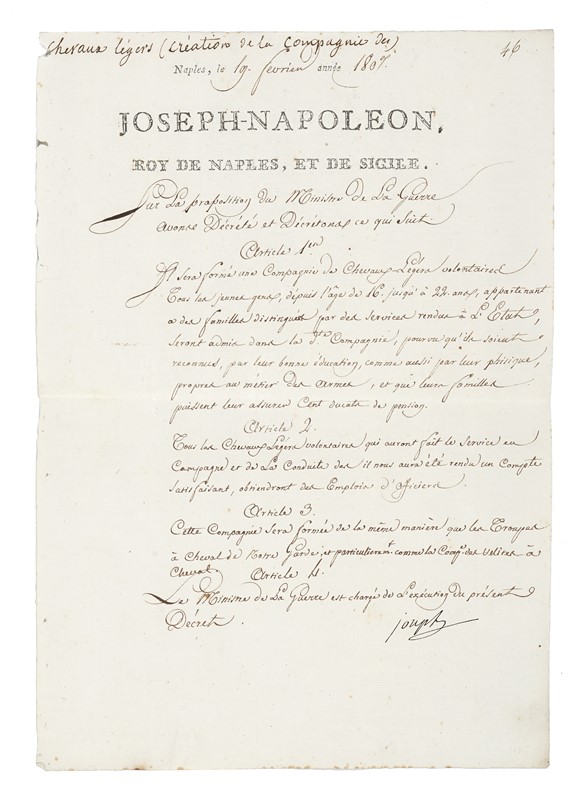 chevaux légers (création de la Compagnie des)
46
Naples, le 19. fevrier année 1807.
JOSEPH-NAPOLEON,
ROY DE NAPLES, ET DE SICILE.
Sur La proposition du Ministre de La Guerre
avons Décrété et Décrétons ce qui Suit
Article 1.er
Il sera formé une Compagnie de Chevaux Légers volontaires
Tous les jeunes gens, depuis l'âge de 16. jusqu'à 22. ans, appartenant
a des familles distingués par des services rendus à L'Etat,
seront admis dans la d.te Compagnie, pourvu qu'ils soient
reconnus, par leur bonne éducation, comme aussi par leur phisique,
propres au métier des armes, et que leurs familles
puissent leur assurer Cent ducats de pension.
Article 2.
Tous les Chevaux Légers volontaires qui auront fait le Service en
Campagne et de La Conduite des il nous aura été rendu un Compte
satisfaisant, obtiendront des Emplois d'officiers.
Article 3.
Cette Compagnie sera formée de la même manière que les Troupes
à cheval de Notre Garde, et particulierem.t comme la Comp.e des Velites à
Cheval.
Article 4.
Le Ministre de La Guerre est chargé de L'exécution du présent
Décret.
joseph